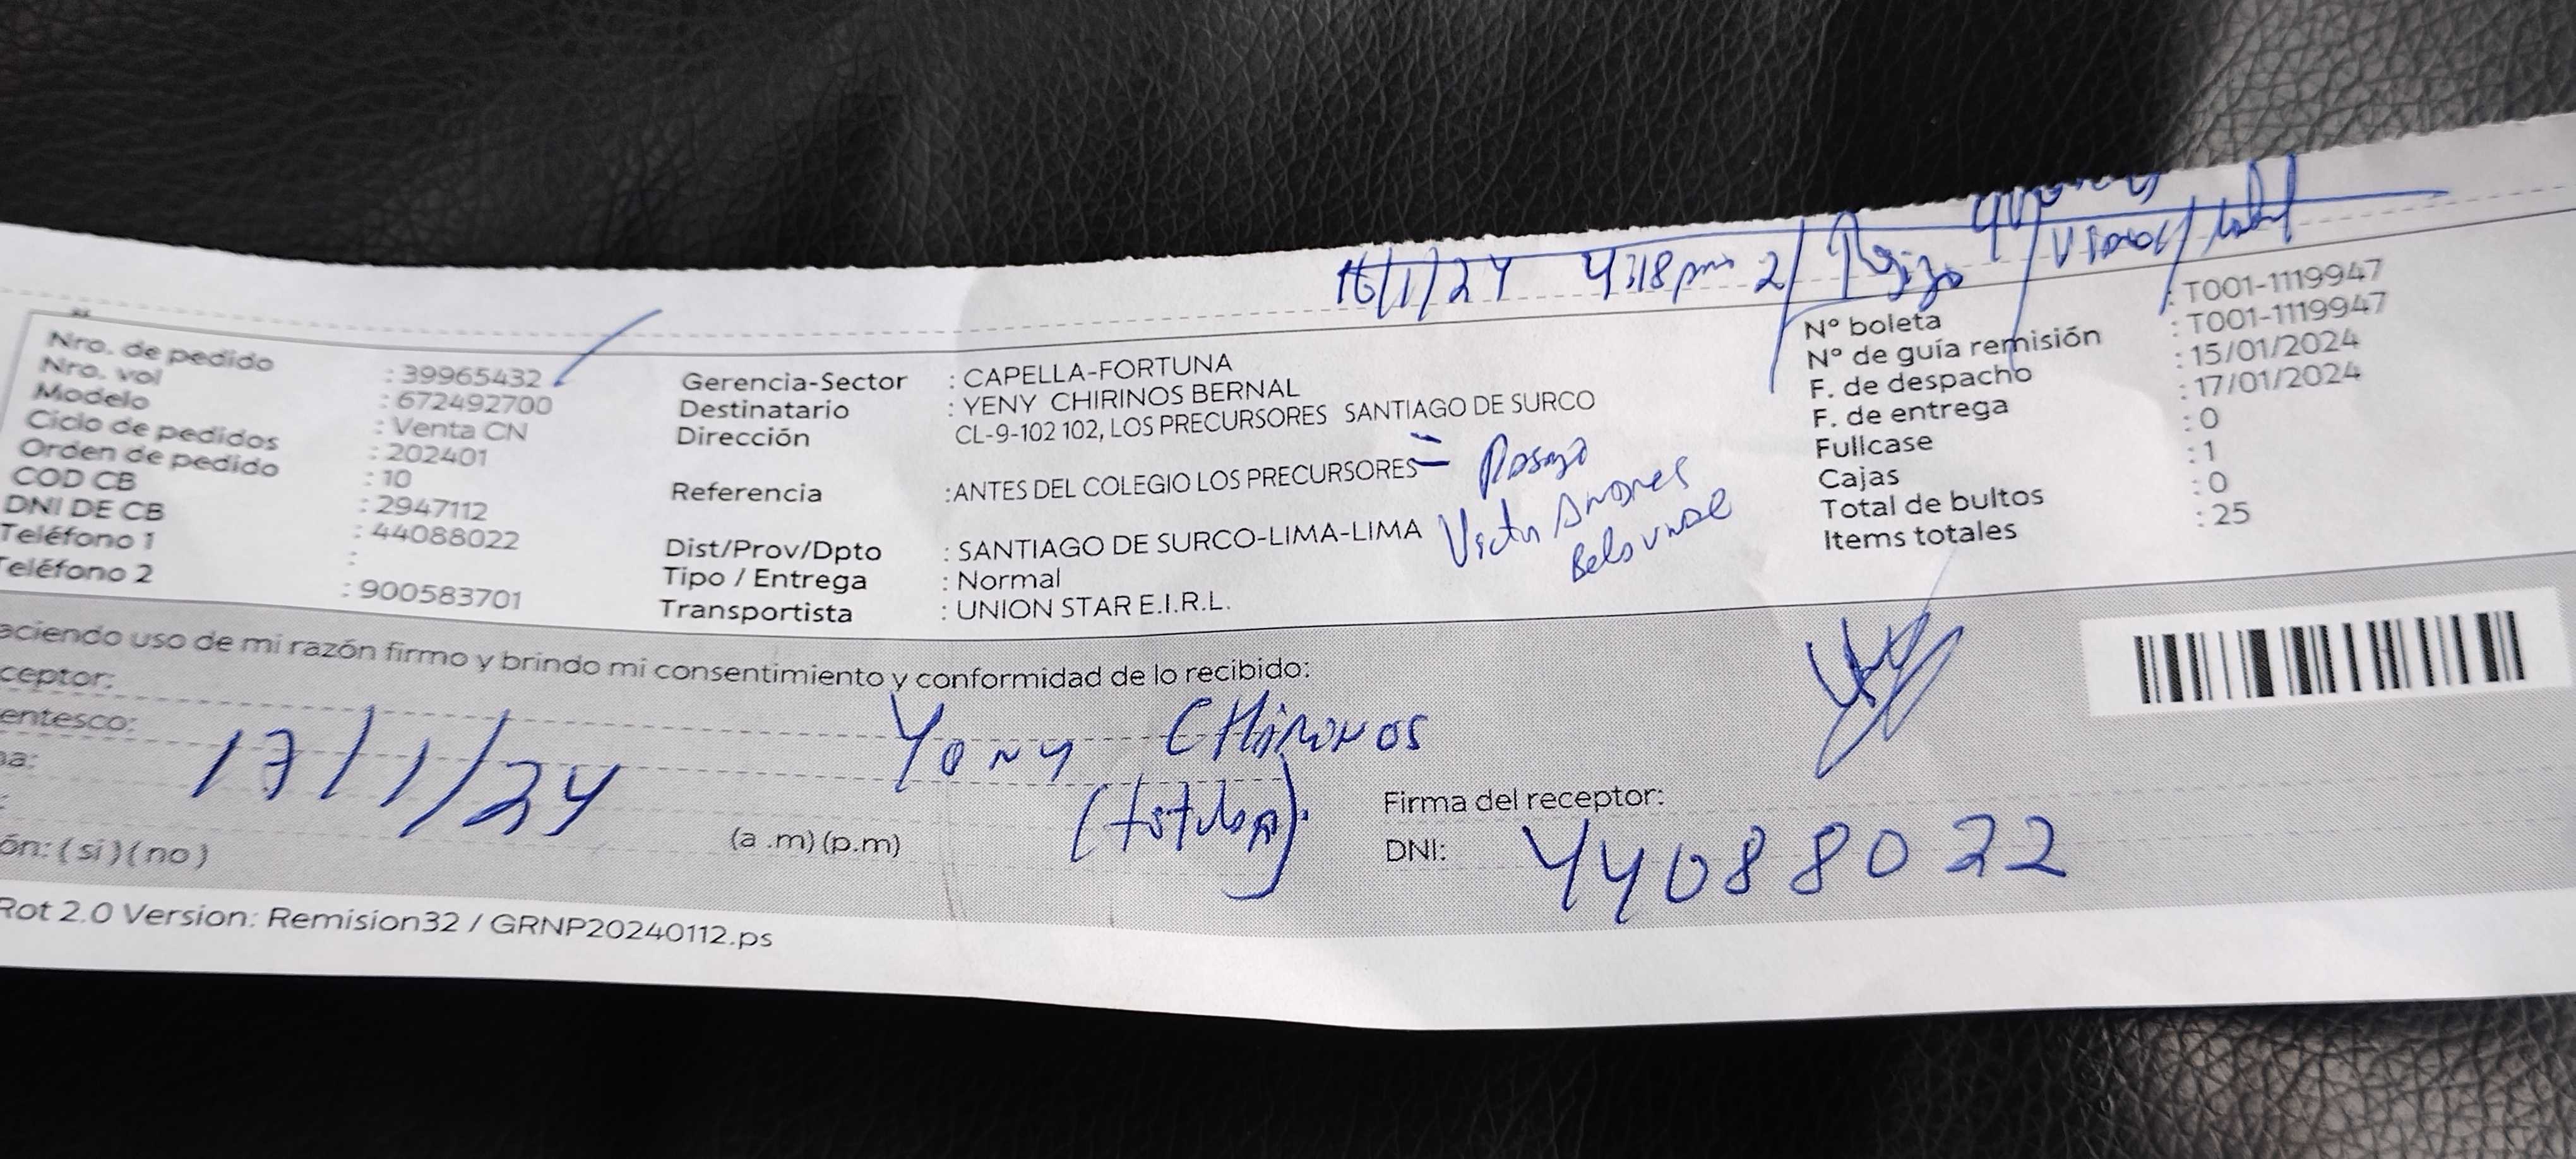 16/1/24 4:18pm 2/
Nro. de pedido : 39965432
Nro. vol : 672492700
Modelo : Venta CN
Ciclo de pedidos : 202401
Orden de pedido : 10
COD CB : 2947112
DNI DE CB : 44088022
Teléfono 1 :
Teléfono 2 : 900583701
Gerencia-Sector : CAPELLA-FORTUNA
Destinatario : YENY CHIRINOS BERNAL
Dirección : CL-9-102 102, LOS PRECURSORES SANTIAGO DE SURCO
Referencia : ANTES DEL COLEGIO LOS PRECURSORES
Victor Andres
Belaunde
Dist/Prov/Dpto : SANTIAGO DE SURCO-LIMA-LIMA
Tipo / Entrega : Normal
Transportista : UNION STAR E.I.R.L.
N° boleta : T001-1119947
N° de guía remisión : T001-1119947
F. de despacho : 15/01/2024
F. de entrega : 17/01/2024
Fullcase : 0
Cajas : 1
Total de bultos : 0
Items totales : 25
aciendo uso de mi razón firmo y brindo mi consentimiento y conformidad de lo recibido:
ceptor:
Yeny CHIRINOS
entesco:
(titular).
a:
17/1/24
(a .m) (p.m)
ón: ( si ) ( no )
Firma del receptor:
DNI: 44088022
Rot 2.0 Version: Remision32 / GRNP20240112.ps